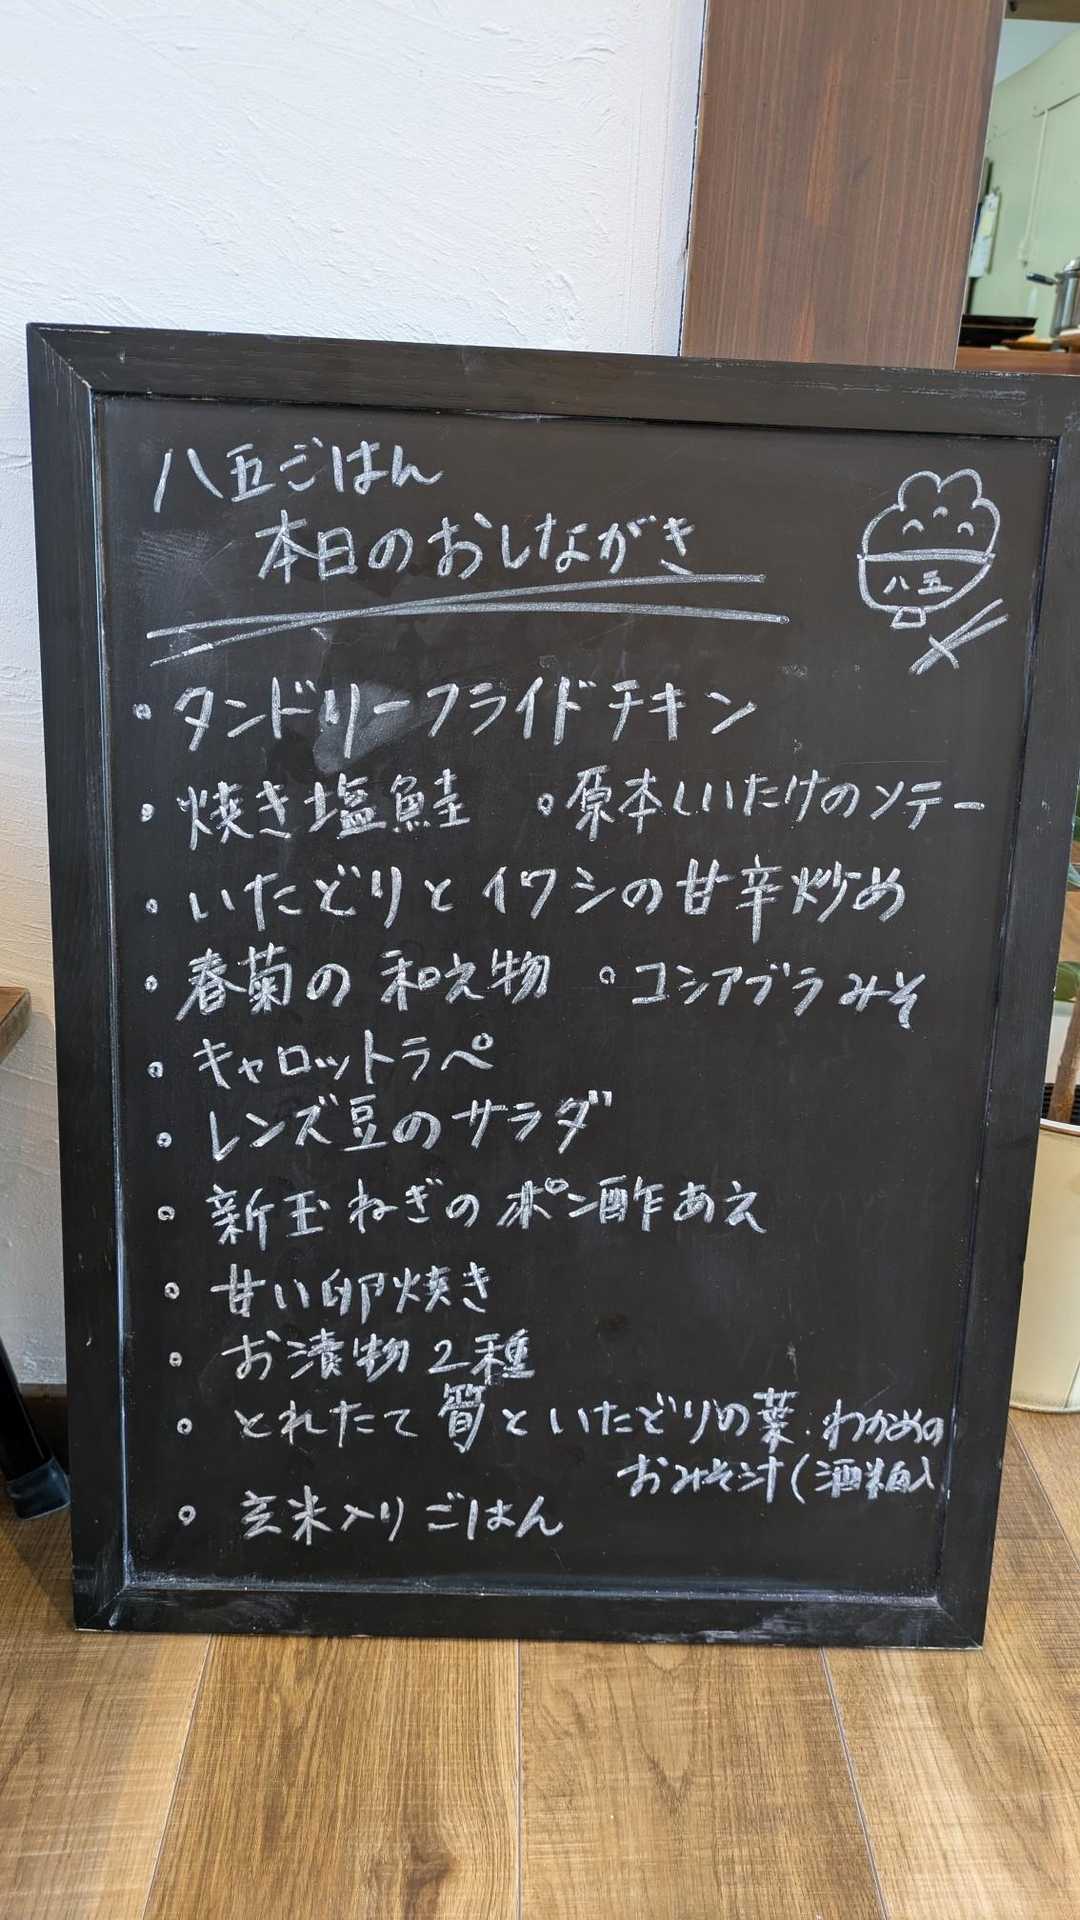 八五ごはん
本日のおしながき
八五
・タンドリーフライドチキン
・焼き塩鮭 ・原本しいたけのソテー
・いたどりとイワシの甘辛炒め
・春菊の和え物 ・コシアブラみそ
・キャロットラペ
・レンズ豆のサラダ
・新玉ねぎのポン酢あえ
・甘い卵焼き
・お漬物2種
・とれたて筍といたどりの葉・わかめの
おみそ汁(酒粕入
・玄米入りごはん